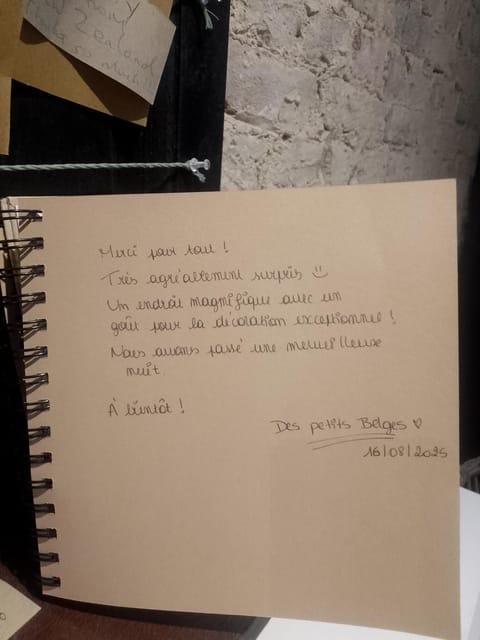 Zealand
so much
Merci pour tout !
Très agréablement surpris :)
Un endroit magnifique avec un
goût pour la décoration exceptionnel !
Nous avons passé une merveilleuse
nuit.
À bientôt !
Des petits Belges ♡
16/08/2025